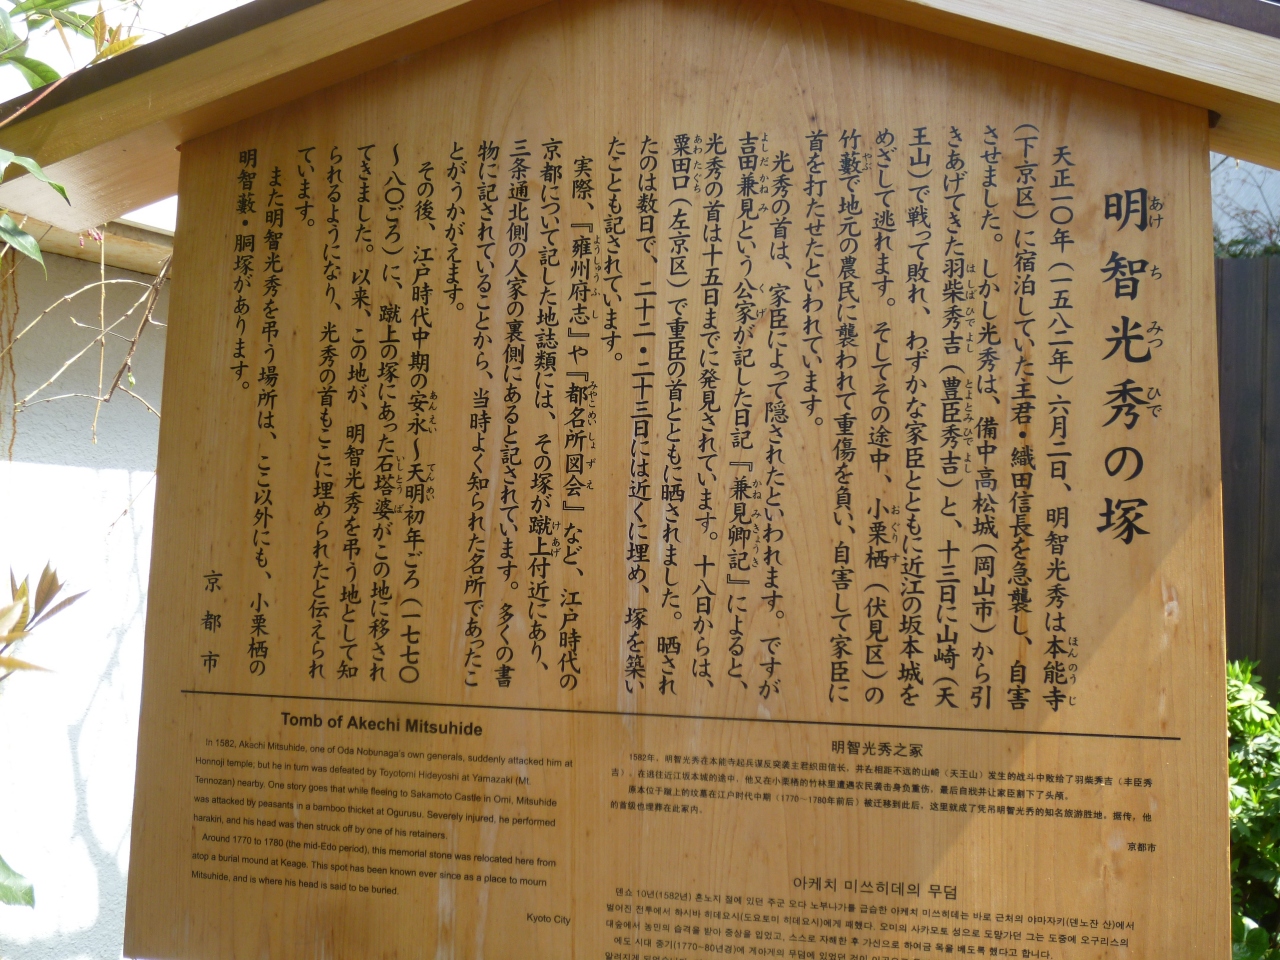 明智光秀の塚
あけ ち みつ ひで
天正一〇年（一五八二年）六月二日、明智光秀は本能寺
（下京区）に宿泊していた主君・織田信長を急襲し、自害
させました。しかし光秀は、備中高松城（岡山市）から引
きあげてきた羽柴秀吉（豊臣秀吉）と、十三日に山崎（天
王山）で戦って敗れ、わずかな家臣とともに近江の坂本城を
めざして逃れます。そしてその途中、小栗栖（伏見区）の
竹藪で地元の農民に襲われて重傷を負い、自害して家臣に
首を打たせたといわれています。
光秀の首は、家臣によって隠されたといわれます。ですが
吉田兼見という公家が記した日記『兼見卿記』によると、
光秀の首は十五日までに発見されています。十八日からは、
粟田口（左京区）で重臣の首とともに晒されました。晒され
たのは数日で、二十二・二十三日には近くに埋め、塚を築い
たことも記されています。
実際、『雍州府志』や『都名所図会』など、江戸時代の
京都について記した地誌類には、その塚が蹴上付近にあり、
三条通北側の人家の裏側にあると記されています。多くの書
物に記されていることから、当時よく知られた名所であったこ
とがうかがえます。
その後、江戸時代中期の安永～天明初年ごろ（一七七〇
～八〇ごろ）に、蹴上の塚にあった石塔婆がこの地に移され
てきました。以来、この地が、明智光秀を弔う地として知
られるようになり、光秀の首もここに埋められたと伝えられ
ています。
また明智光秀を弔う場所は、ここ以外にも、小栗栖の
明智藪・胴塚があります。
京都市
Tomb of Akechi Mitsuhide
In 1582, Akechi Mitsuhide, one of Oda Nobunaga's own generals, suddenly attacked him at
Honnoji temple; but he in turn was defeated by Toyotomi Hideyoshi at Yamazaki (Mt.
Tennozan) nearby. One story goes that while fleeing to Sakamoto Castle in Omi, Mitsuhide
was attacked by peasants in a bamboo thicket at Ogurusu. Severely injured, he performed
harakiri, and his head was then struck off by one of his retainers.
Around 1770 to 1780 (the mid-Edo period), this memorial stone was relocated here from
atop a burial mound at Keage. This spot has been known ever since as a place to mourn
Mitsuhide, and is where his head is said to be buried.
Kyoto City
明智光秀之冢
1582年，明智光秀在本能寺起兵谋反突袭主君织田信长，并在相距不远的山崎（天王山）发生的战斗中败给了羽柴秀吉（丰臣秀
吉）。在逃往近江坂本城的途中，他又在小栗栖的竹林里遭遇农民袭击身负重伤，最后自戕并让家臣割下了头颅。
原本位于蹴上的坟墓在江户时代中期（1770～1780年前后）被迁移到此后，这里就成了凭吊明智光秀的知名旅游胜地，据传，他
的首级也埋葬在此冢内。
京都市
아케치 미쓰히데의 무덤
덴쇼 10년(1582년) 혼노지 절에 있던 주군 오다 노부나가를 급습한 아케치 미쓰히데는 바로 근처의 야마자키(덴노잔 산)에서
벌어진 전투에서 하시바 히데요시(도요토미 히데요시)에게 패했다. 오미의 사카모토 성으로 도망가던 그는 도중에 오구리스의
대숲에서 농민의 습격을 받아 중상을 입었고, 스스로 자해한 후 가신으로 하여금 목을 베도록 했다고 합니다.
에도 시대 중기(1770~80년경)에 게아게의 무덤에 있었던